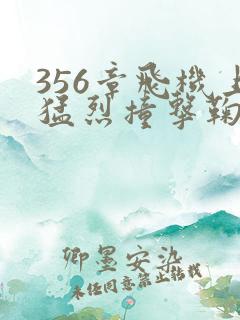 356章飛機上
猛烈撞擊鞠
卿墨安染
未经同意禁止转载